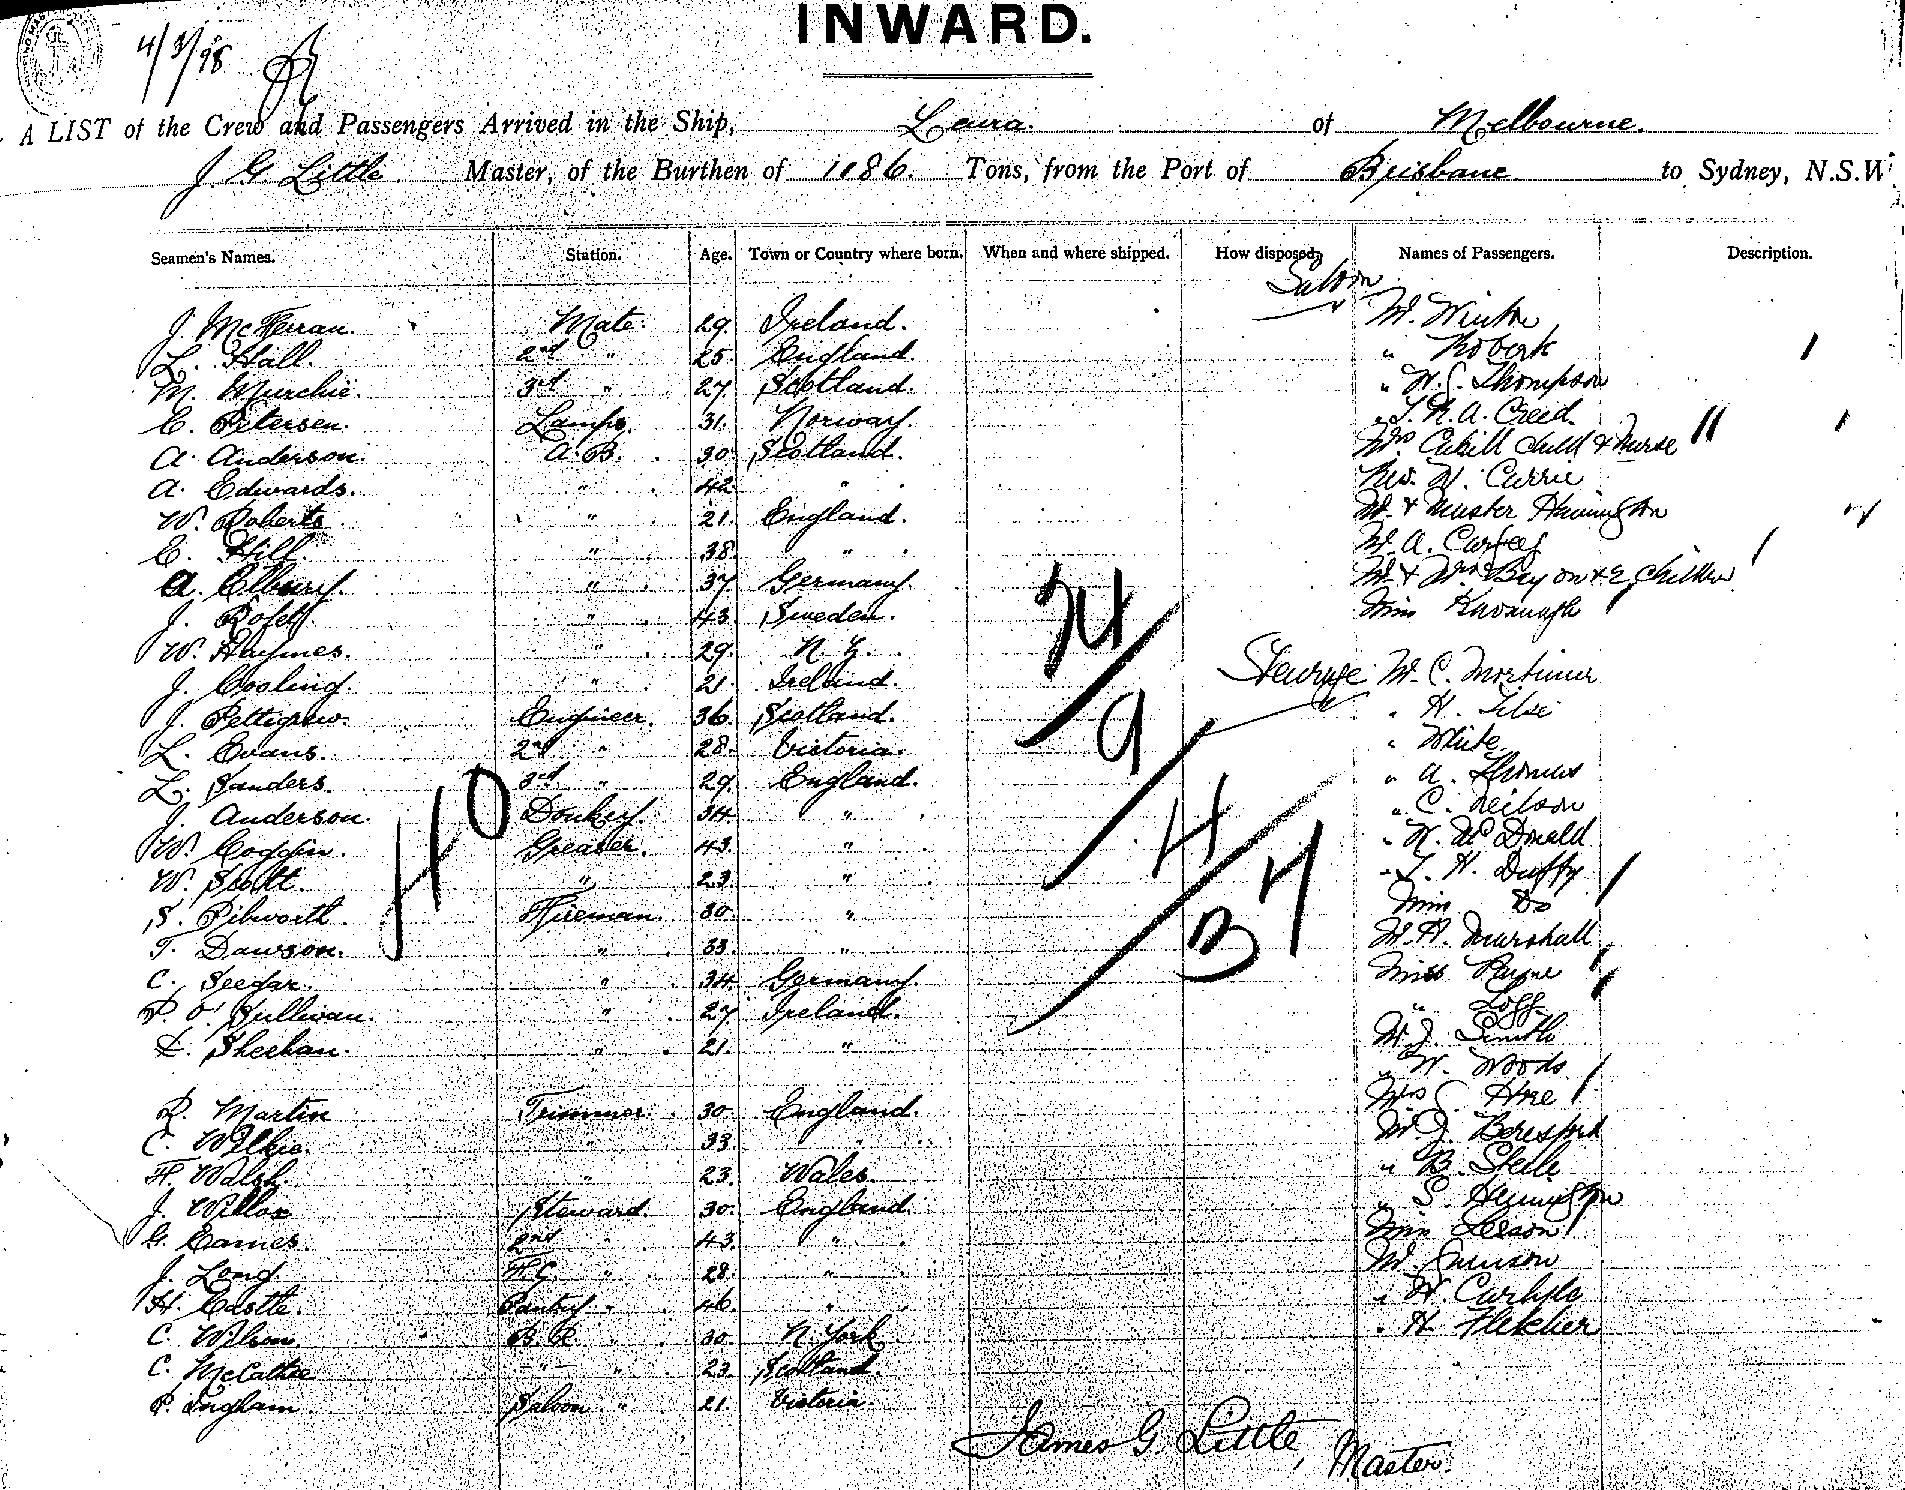 INWARD.
4/3/98
A LIST of the Crew and Passengers Arrived in the Ship, Leura. of Melbourne.
J. G. Little Master, of the Burthen of 1186. Tons, from the Port of Brisbane to Sydney, N.S.W.
Seamen's Names. Station. Age. Town or Country where born. When and where shipped. How disposed. Names of Passengers. Description.
Saloon
J. McFerran. Mate. 29. Ireland. Mr. Winton
L. Hall. 2nd " 25. England. "
M. Murchie. 3rd " 27. Scotland. " W. Thompson
C. Petersen. Lamps. 31. Norway. " Creed
A. Anderson. A.B. 30. Scotland. Mrs Cahill Child & Nurse
A. Edwards. " 42. " Rev. W. Currie
W. Roberts. " 21. England. Mr. & Master Hannington
E. Hill " 38. " Mr. A.
A. " 37. Germany. Mr. & Mrs & 2 Children
J. " 43. Sweden. Miss Kavanagh
W. Haymes. " 29. N. Z.
J. Cooling. " 21. Ireland. Steerage Mr. C. Mortimer
J. Pettigrew. Engineer. 36. Scotland. " H.
L. Evans. 2nd " 28. Victoria. " White
L. Sanders. 3rd " 29. England. " A. Thomas
J. Anderson. Donkey. 34. " " C. Neilson
W. Coggin. Greaser. 43. " " McDonald
W. Scott. " 23. " " H. Duffy
S. Pibworth. Fireman. 30. " Miss Do
T. Dawson. " 33. " Mr. H. Marshall
C. Seegar. " 34. Germany. Miss Payne
P. O'Sullivan. " 27. Ireland. "
D. Sheehan. " 21. " Mr. J. Smith
" W. Woods
R. Martin Trimmer. 30. England. Mrs Hoe
C. Wilkie. " 33. " Mr. J. Beresford
F. Walsh. " 23. Wales. " B. Steele
J. Willox Steward. 30. England. " S. Hennington
G. Eames. 2nd " 43. " Miss Leeson
J. Long F.C. " 28. " Mr.
H. Castle. Pantry " 46. " " W. Carlisle
C. Wilson. " 30. N. York " H. Fletcher
C. " 23. Scotland.
P. Ingham. Saloon " 21. Victoria.
40
24
9
4
37
James G. Little, Master.